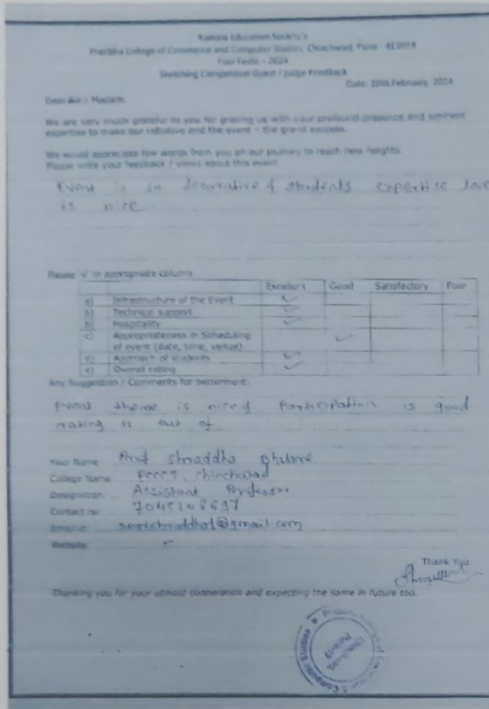 Kamala Education Society's
Pratibha College of Commerce and Computer Studies, Chinchwad, Pune - 411019
Flair Fiesta - 2024
Sketching Competition Guest / Judge Feedback
Date: 10th February, 2024
Dear Sir / Madam,
We are very much grateful to you for gracing us with your profound presence and eminent
expertise to make our initiative and the event - the grand success.
We would appreciate few words from you on our journey to reach new heights.
Please write your feedback / views about this event:
Event is so decorative & students expertise
is nice
Please √ in appropriate column
Excellent Good Satisfactory Poor
a) Infrastructure of the Event ✓
b) Technical support ✓
b) Hospitality ✓
c) Appropriateness in Scheduling
of event (date, time, venue) ✓
d) Approach of students ✓
e) Overall rating ✓
Any Suggestion / Comments for betterment:
Event theme is nice & Participation is good
rating is out of
Your Name Prof Shraddha
College Name Chinchwad
Designation Assistant Professor
Contact no
Email id @gmail.com
Website -
Thank You
Thanking you for your utmost cooperation and expecting the same in future too.